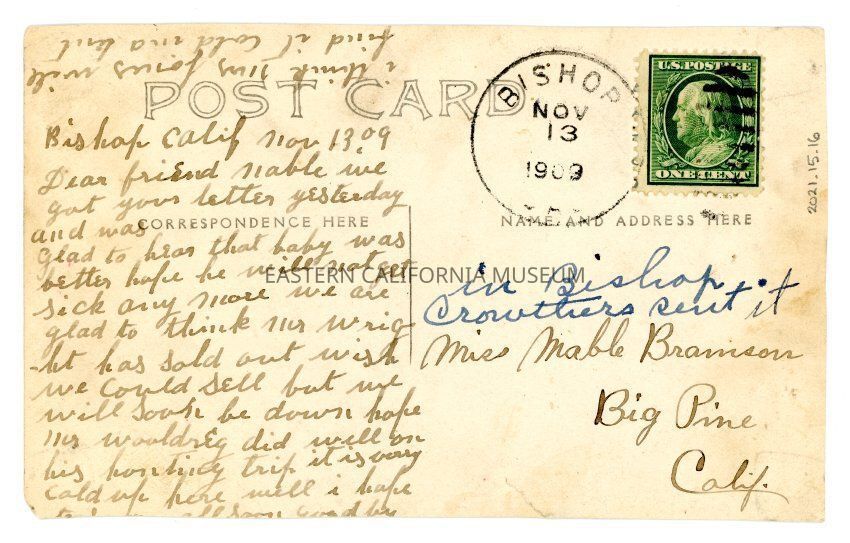 i think mrs jones will
find it cold and
POST CARD
Bishop Calif Nov 13 09
Dear friend Mable we
got your letter yesterday
and was
CORRESPONDENCE HERE
glad to hear that baby was
better hope he will not get
sick any more we are
glad to think Mr Wrig
-ht has sold out wish
we could sell but we
will soon be down hope
Mr did well on
his honting trip it is very
cold up here well i hope
all soon good by
BISHOP
NOV
13
1909
U.S. POSTAGE
ONE CENT
2021.15.16
NAME AND ADDRESS HERE
EASTERN CALIFORNIA MUSEUM
in Bishop
Crowthers sent it
Miss Mable Bramson
Big Pine
Calif.